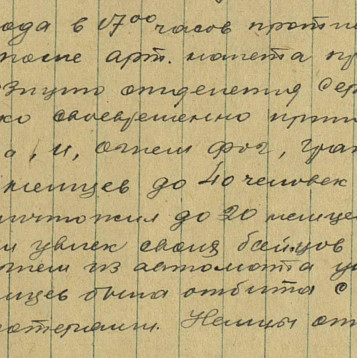 ода в 17⁰⁰ часов проти
после арт. налета пр
отделения Сер
ко своевременно прин
а, и, огнем
немцев до 40 человек
ничтожил до 20 немце
и увлек своих бойцов
огнем из автомата у
мцев была отбита с
потерями. Немцы от